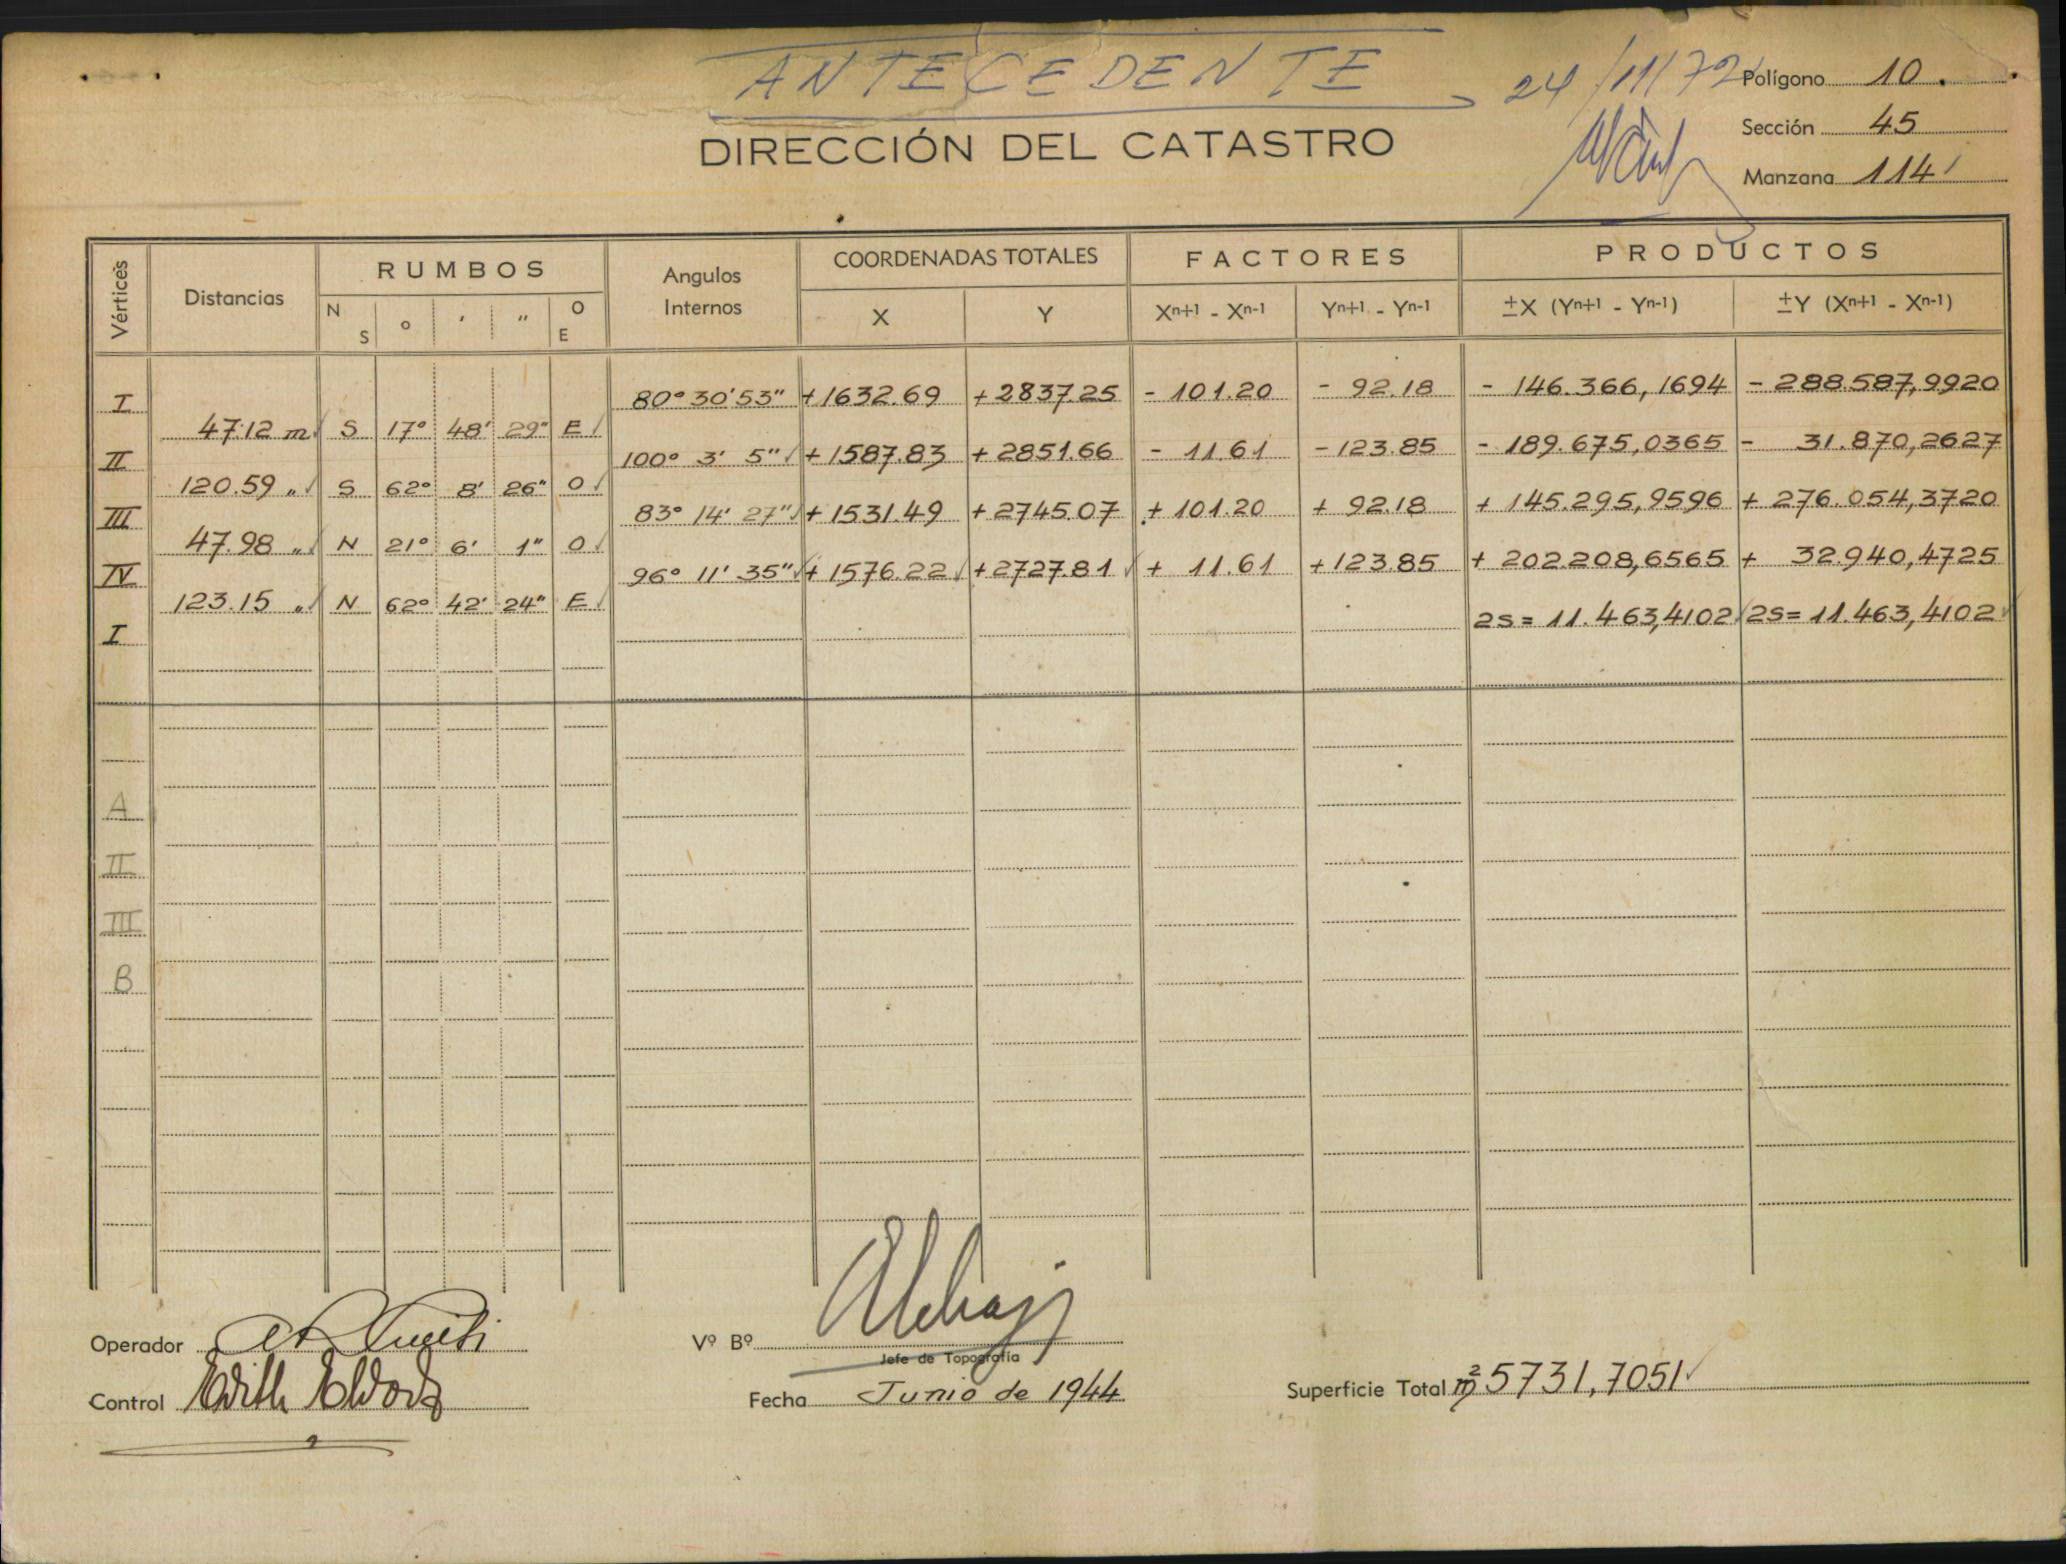 ANTECEDENTE 24/11/72
DIRECCIÓN DEL CATASTRO
Polígono 10.
Sección 45
Manzana 114
Vértices Distancias RUMBOS Angulos Internos COORDENADAS TOTALES FACTORES PRODUCTOS
N S ° ' " O E X Y Xn+1 - Xn-1 Yn+1 - Yn-1 ±X (Yn+1 - Yn-1) ±Y (Xn+1 - Xn-1)
I 80° 30' 53" +1632.69 +2837.25 - 101.20 - 92.18 - 146.366,1694 - 288.587,9920
47.12 m S 17° 48' 29" E
II 100° 3' 5" +1587.83 +2851.66 - 11.61 -123.85 - 189.675,0365 - 31.870,2627
120.59 " S 62° 8' 26" O
III 83° 14' 27" +1531.49 +2745.07 + 101.20 + 92.18 + 145.295,9596 + 276.054,3720
47.98 " N 21° 6' 1" O
IV 96° 11' 35" +1576.22 +2727.81 + 11.61 +123.85 + 202.208,6565 + 32.940,4725
123.15 " N 62° 42' 24" E
I 2S= 11.463,4102 2S= 11.463,4102
A
II
III
B
Operador
Vº Bº
Jefe de Topografía
Control Edith
Fecha Junio de 1944
Superficie Total m² 5731,7051